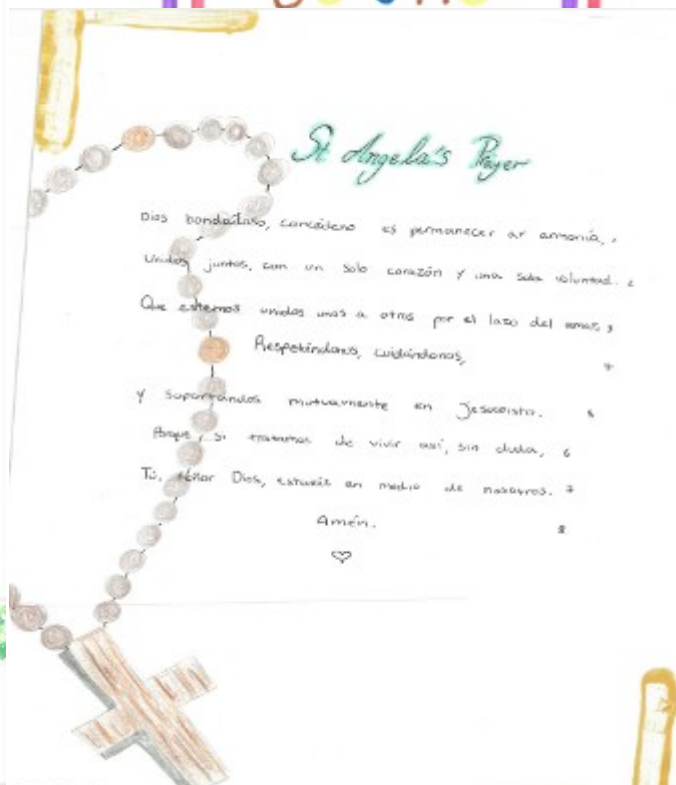 St Angela's Prayer
Dios bondadoso, concédenos permanecer armonía, 1
Unidos juntos, con un solo corazón y una sola voluntad. 2
Que estemos unidos unos a otros por el lazo del amor, 3
Respetándonos, cuidándonos, 4
y soportándos mutuamente en Jesucristo. 5
Porque, si tratamos de vivir así, sin duda, 6
Tú, Señor Dios, estarás en medio de nosotros. 7
Amén. 8